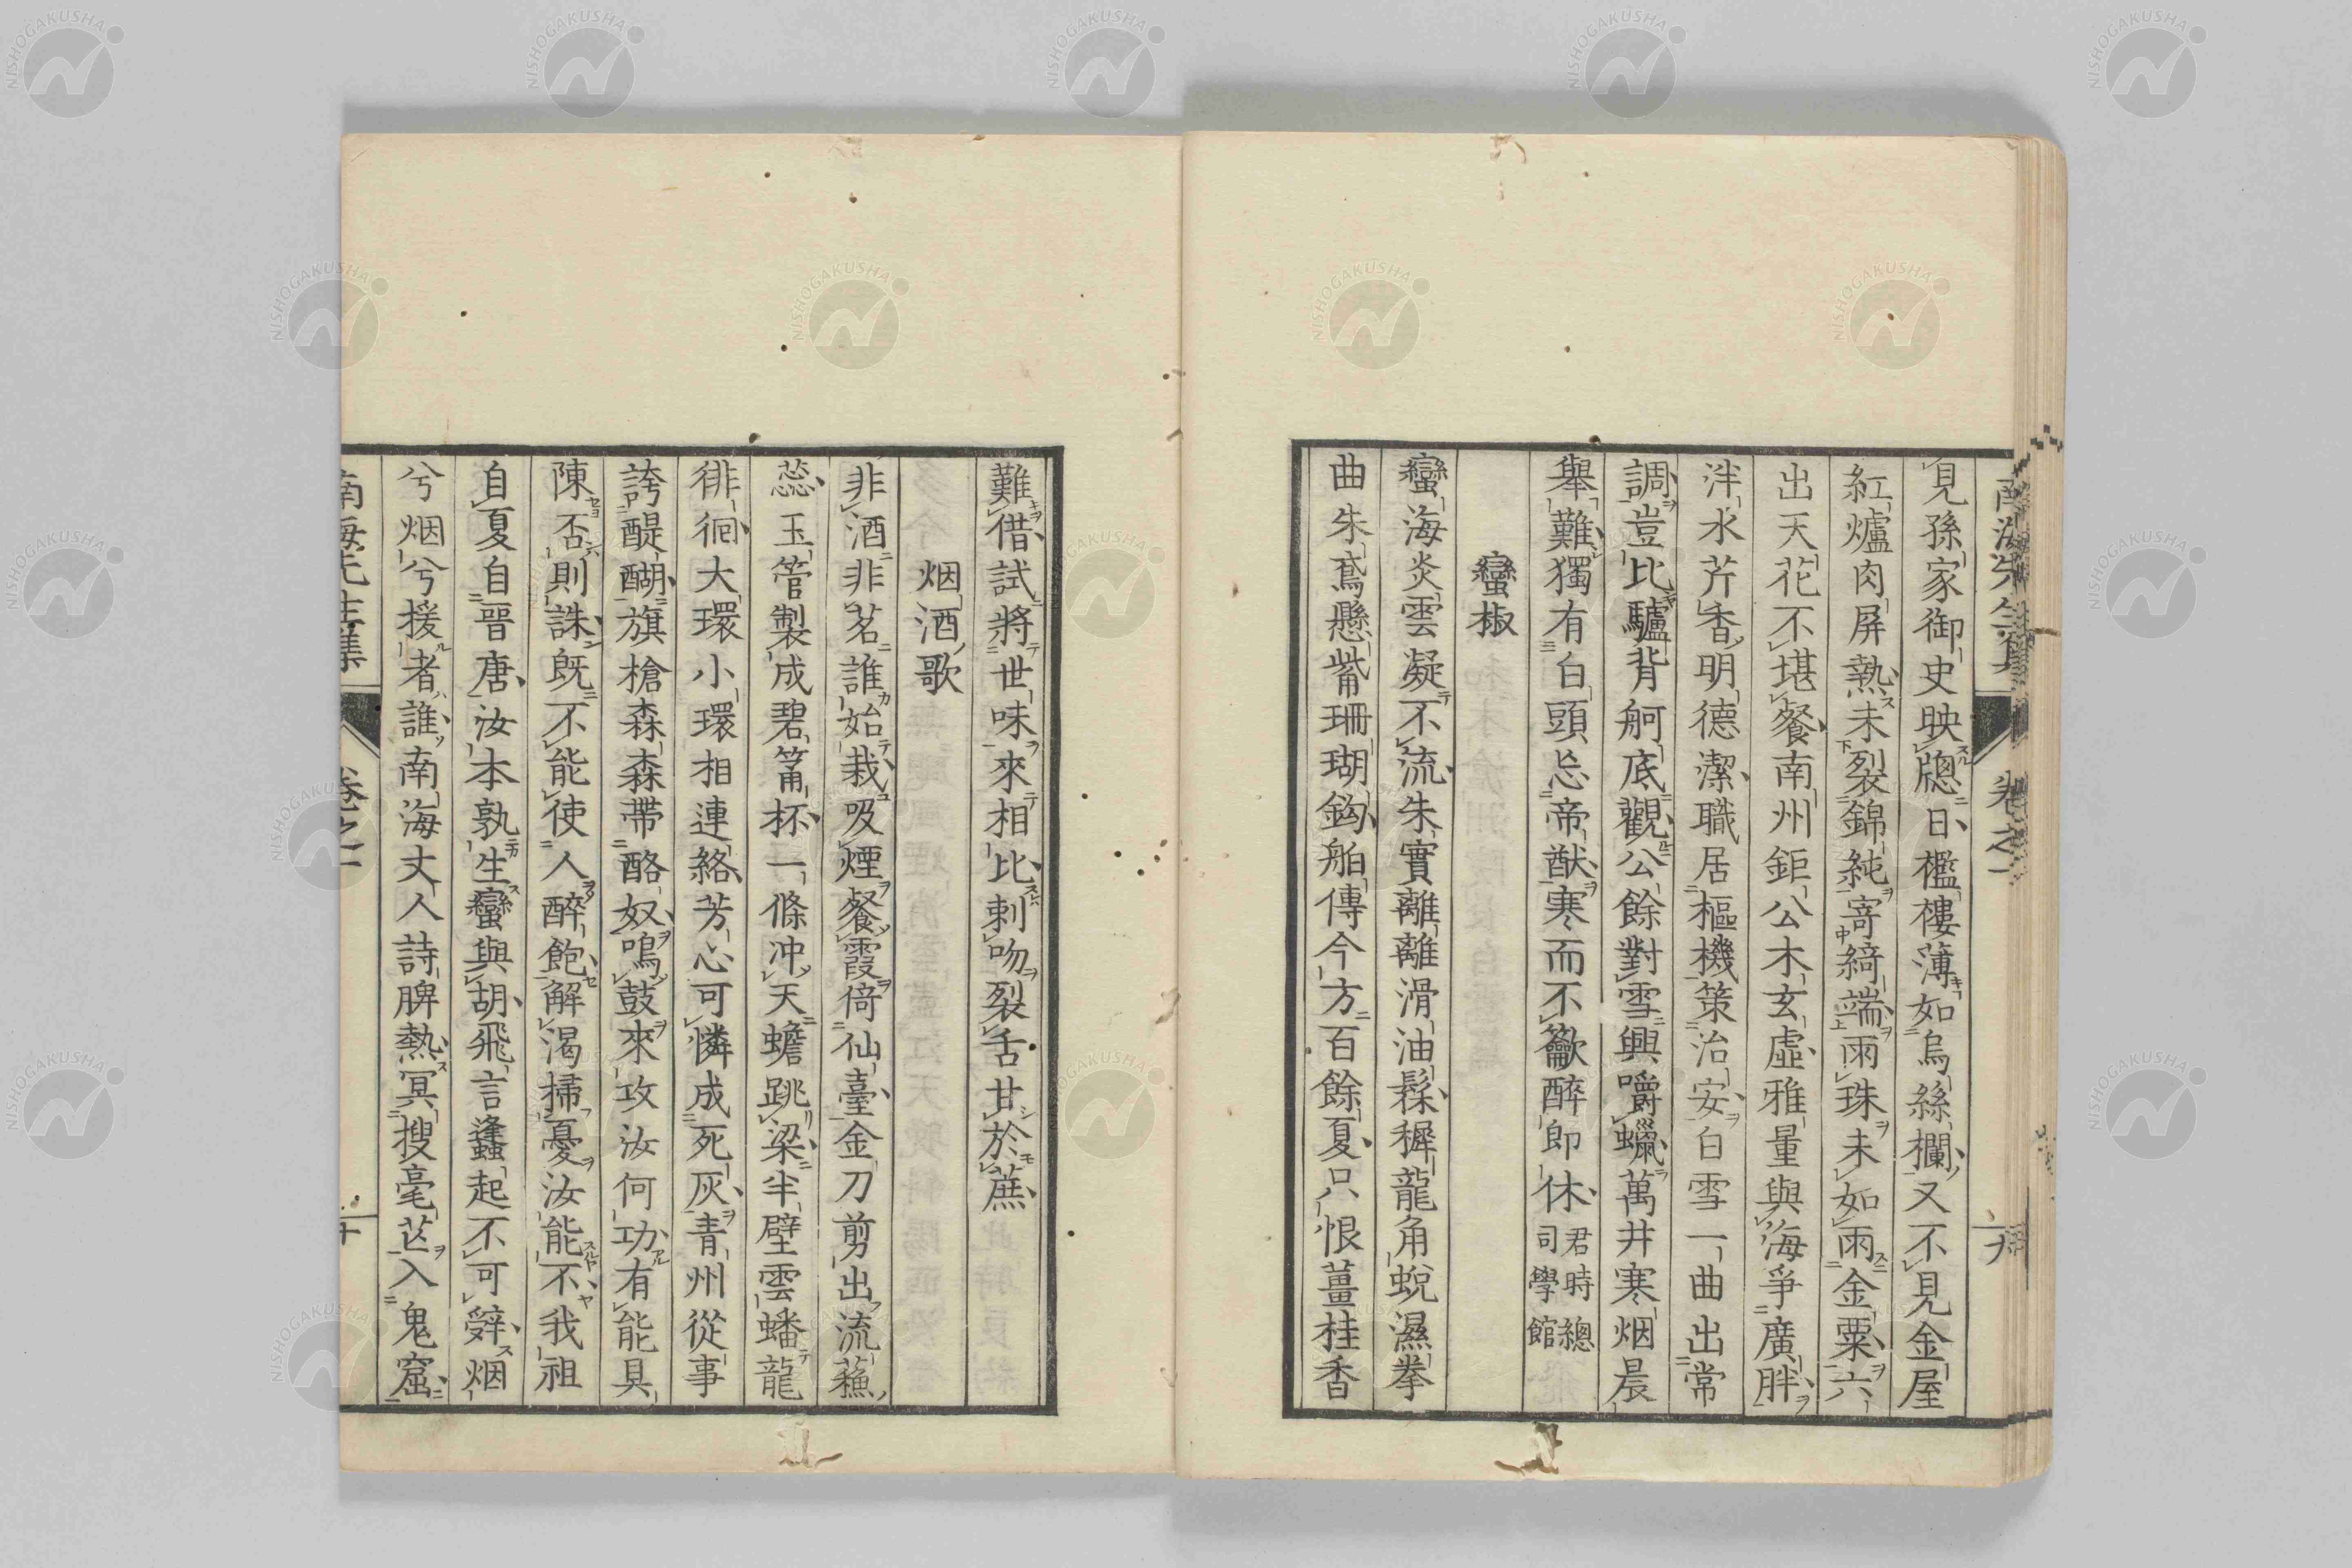 見孫家御史映牕日檻樓薄如烏絲欄又不見金屋
紅爐肉屏熱未裂錦純寄綺端雨珠未如雨金粟六
出天花不堪餐南州鉅公木玄虛雅量與海爭廣胖
泮水芹香明德潔職居樞機策治安白雪一曲出常
調豈比驢背舸底觀公餘對雪興嚼蠟萬井寒烟晨
舉難獨有白頭忘帝猷寒而不籲醉即休君時總
司學館
蠻椒
蠻海炎雲凝不流朱實離離滑油髹穉龍角蛻濕拳
曲朱鳶懸觜珊瑚鈎舶傳今方百餘夏只恨薑桂香
南海先生集
卷之一
難借試將世味來相比刺吻裂舌甘於蔗
烟酒歌
非酒非茗誰始栽吸煙餐霞倚仙臺金刀剪出流蘓
蕊玉管製成碧筩杯一條冲天蟾跳梁半壁雲蟠龍
徘徊大環小環相連絡芳心可憐成死灰青州從事
誇醍醐旗槍森森帶酪奴鳴鼓來攻汝何功有能具
陳否則誅既不能使人醉飽解渴掃憂汝能不我祖
自夏自晋唐汝本孰生蠻與胡飛言蠭起不可辤烟
兮烟兮援者誰南海丈人詩脾熱冥搜毫芒入鬼窟
南海先生集
卷之一
十
NISHOGAKUSHA